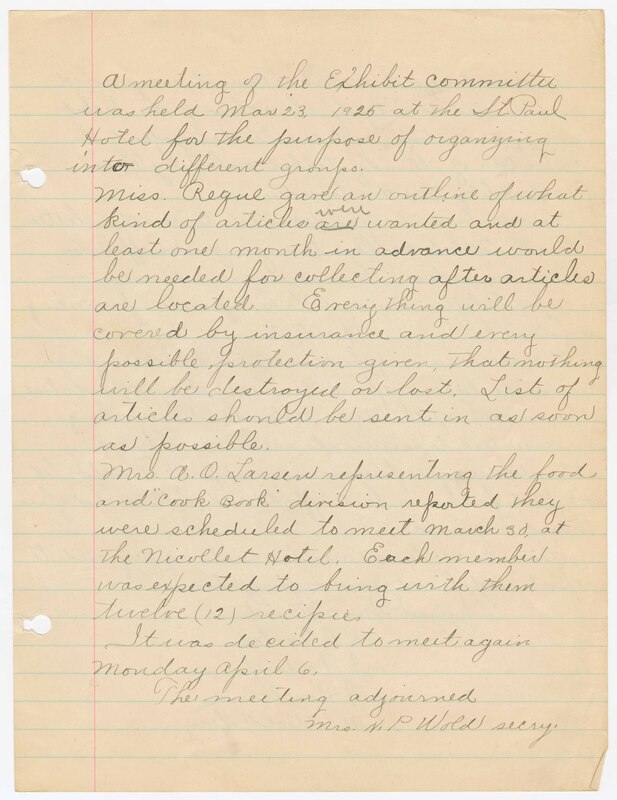 A meeting of the Exhibit committee
was held Mar 23, 1925 at the St. Paul
Hotel for the purpose of organizing
into different groups.
Miss. Regue gave an outline of what
were
kind of articles are wanted and at
least one month in advance would
be needed for collecting after articles
are located. Everything will be
covered by insurance and every
possible protection given, that nothing
will be destroyed or lost. List of
articles should be sent in as soon
as possible.
Mrs A. O. Larsen representing the food
and "Cook Book" division reported they
were scheduled to meet March 30, at
the Nicollet Hotel. Each member
was expected to bring with them
twelve (12) recipies
It was decided to meet again
Monday April 6.
The meeting adjourned
Mrs. N. P Wold secry.